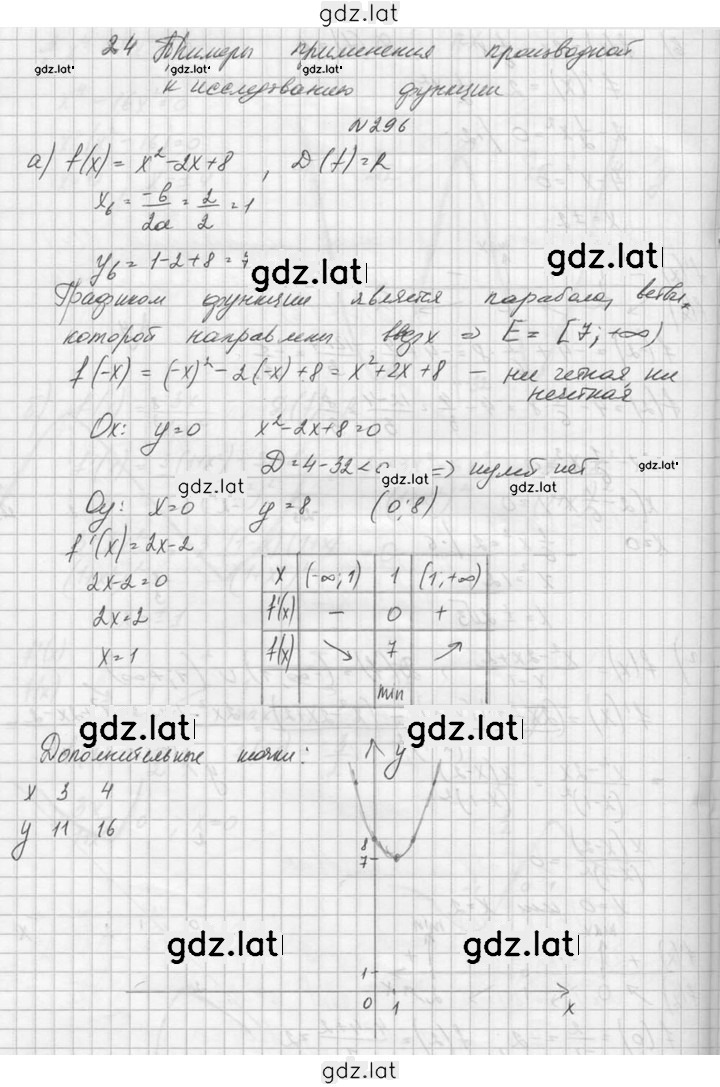 gdz.lat
24 Примеры применения производной
gdz.lat gdz.lat gdz.lat
к исследованию функции
№296
а) f(x) = x²-2x+8 , D(f)=R
x в = -b/2a = 2/2 = 1
y в = 1-2+8 = 7
gdz.lat gdz.lat
Графиком функции является парабола, ветви
которой направлены вверх => E = [7; +∞)
f(-x) = (-x)² - 2(-x) + 8 = x²+2x+8 - ни четная, ни
нечетная
Ox: y=0 x²-2x+8=0
D=4-32<0 => нулей нет
gdz.lat gdz.lat gdz.lat gdz.lat
Oy: x=0 y=8 (0;8)
f'(x)=2x-2
2x-2=0
2x=2
x=1
x (-∞;1) 1 (1;+∞)
f'(x) - 0 +
f(x) ↘ 7 ↗
min
gdz.lat gdz.lat
Дополнительные точки:
x 3 4
y 11 16
y
8
7
gdz.lat gdz.lat
1
0 1 x
gdz.lat